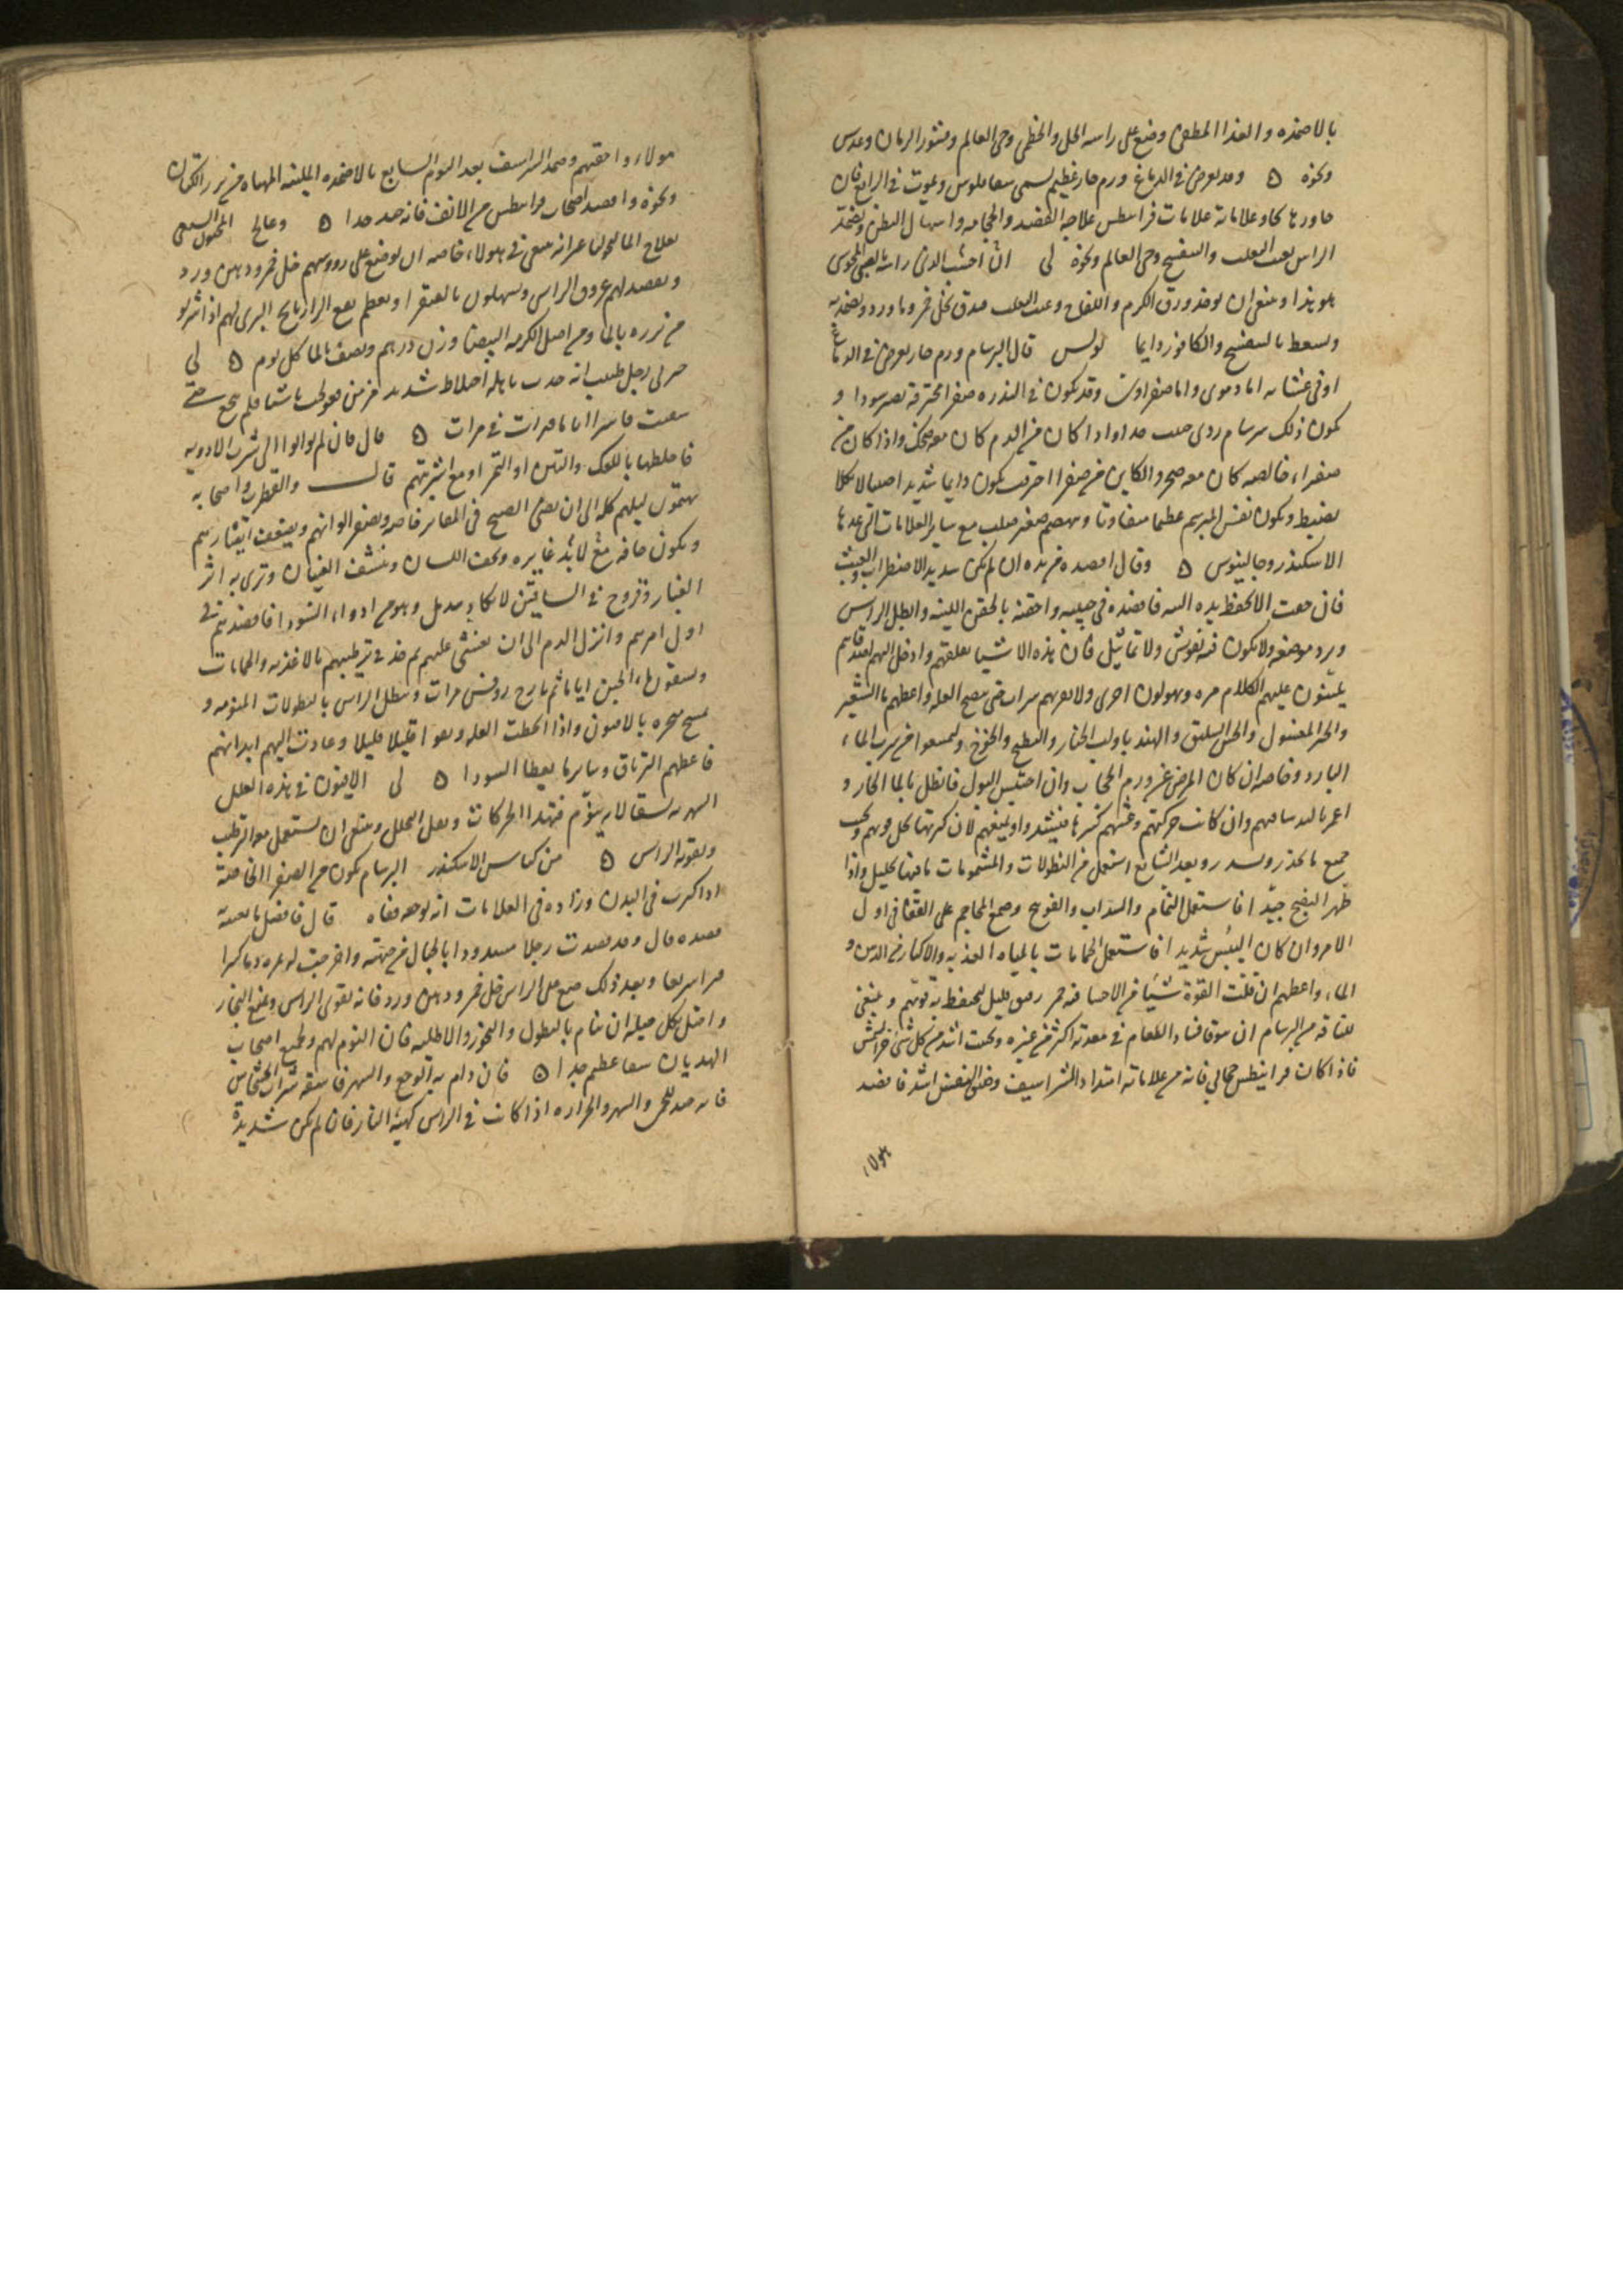 بالاضمده والغذا المطفى وضع على راسه الخل والخطمى وحى العالم وقشور الرمان وعدس
ونحوه ه وقد يعرض فى الدماغ ورم حار عظيم يسمى سقاقلوس ويموت فى الرابع فان
جاوزها نجا وعلاماته علامات فرانيطس علاجه الفصد والحجامه واسهال البطن وتضمد
الراس بعنب الثعلب والبنفسج وحى العالم ونحوه لى ان احسب الذى رايته بالصبى المجوسى
هو هذا وينبغى ان يوخذ ورق الكرم واللفاح وعنب الثعلب يدق بخل خمر وماورد ويضمد به
ويسعط بالبنفسج والكافور دايما بولس قال البرسام ورم حار يعرض فى الدماغ
او فى غشائه اما دموى واما صفراوى وقد يكون فى الندره صفرا محترقه تصير سودا و
يكون ذلك سرسام ردى صلب جدا واذا كان من الدم كان معه ضحك واذا كان من
صفراء خالصه كان معه ضجر والكاين من صفرا احترقت يكون دايما شديد لا يكاد
يضبط ويكون نفس المبرسم عظيما متفاوتا ونبضهم صغير صلب مع ساير العلامات التى عدها
الاسكندر وجالينوس ه وقال افصده من يده ان لم يكن شديد الاضطراب والعبث
فان خفت الا يحفظ يده فافصده فى جبينه واحقنه بالحقن اللينه وابطل الراس
وبرد موضعه ولا يكون فيه نقوش ولا تماثيل فان هذه الاشيا تقلقهم وادخل اليهم اصدقاهم
يلينون عليهم الكلام مره ويهولون اخرى ولا تقربهم شراب حتى ينضج العله واعطهم ما الشعير
والخبز المغسول والخس السليق والهندبا ولب الخيار والبطيخ والخوخ وليمنعوا من شرب الماء
البارد وخاصه ان كان المرض عن ورم الحجاب وان احتبس البول فانطل بالما الحار و
اغمز باليد مثانتهم وان كانت حركتهم وعبثهم كثيرا فليشدوا او يمنعهم لان كثرتها تحل قوتهم ويجب
جميع ما يخدر ويسدر وبعد السابع استعمل من النطولات والمشمومات ما فيها تحليل واذا
ظهر النضج جيدا فاستعمل النمام والسداب والفوتنج وضع المحاجم على القفا فى اول
الامر وان كان اليبس شديدا فاستعمل الحمامات بالمياه العذبه والاكثار من الدهن و
الماء واعطهم ان قلت القوة شيئا من الاحسا فيه خمر رقيق قليل ليحفظ به قوتهم وينبغى
للناقه من البرسام ان يتوقا فساد الطعام فى معدته اكثر من غيره ويجب اشد من كل شئ من الشمس
فاذا كان فرانيطس حجابى فانه من علاماته امتداد الشراسيف وضيق النفس اشد فافصد
هولاء
هولاء واحقنهم وضمد الشراسيف بعد اليوم السابع بالاضمده الملينه المهياه من بزر الكتان
ونحوه وافصد اصحاب فرانيطس من الانف فانه جيد جدا ه وعالج الجنون السبعى
بعلاج الماليخوليا غير انه ينبغى فى هولاء خاصه ان يوضع على رووسهم خل خمر ودهن ورد
ويفصد لهم عروق الراس ويسهلون بالصبر او يعظم نفع الرازيانج البرى لهم اذا شربوا
من بزره بالما ومن اصل الكرمه البيضا وزن درهم ونصف بالما كل يوم ه لى
خبرنى رجل طبيب انه حدث باهله اختلاط شديد مزمن فعولجت باشيا فلم ينجع حتى
سقيت قاشرا اياما مرات فى مرات ه قال فان لم يواتوا الى شرب الادويه
فاخلطها بالكعك والتين او التمر او مع اشربتهم قال والقطرب واصحابه
يهيمون ليلهم كله الى ان يضئ الصبح فى المقابر خاصه وتصفر الوانهم ويضعف ابصارهم
ويكون جافه غايره ويجف اللسان وينشف العينان وترى به اثر
الغبار وقروح فى الساقين لا تكاد تندمل وهو من ادواء السودا فافصدهم فى
اول امرهم وانزل الدم الى ان يغشى عليهم ثم خذ فى ترطيبهم بالاغذيه والحمامات
ويسقون ماء الجبن اياما ثم يارج روفس مرات وينطل الراس بالنطولات المنومه و
يمسح منخره بالافيون واذا انحطت العله وبقوا قليلا قليلا وعادت اليهم ابدانهم
فاعطهم الترياق وساير ما يعطا السودا ه لى الافيون فى هذه العلل
السهريه سقا لانه ينوم فتهدا الحركات ويقل التحلل وينبغى ان يستعمل معه الترطيب
وتقويه الراس ه من كناس الاسكندر البرسام يكون من الصفرا الخالصه
اذا كثرت فى البدن وزاده فى العلامات انه يوجعه قفاه قال فافضل ما تعينه
فصده قال وقد فصدت رجلا مشدودا بالحبال من جبهته واخرجت له مره دما كثيرا
فبرا سريعا وبعد ذلك ضع على الراس خل خمر ودهن ورد فانه يقوى الراس ويمنع البخار
واحتل بكل حيله ان ينام بالنطول والبخور والاطليه فان النوم لهم ولجميع اصحاب
الهذيان شفا عظيم جدا ه فان دام به الوجع والسهر فاسقه شراب الخشخاش
فانه جيد للحمى والسهر والحراره اذا كانت فى الراس كهيئه النار فان لم تكن شديدة